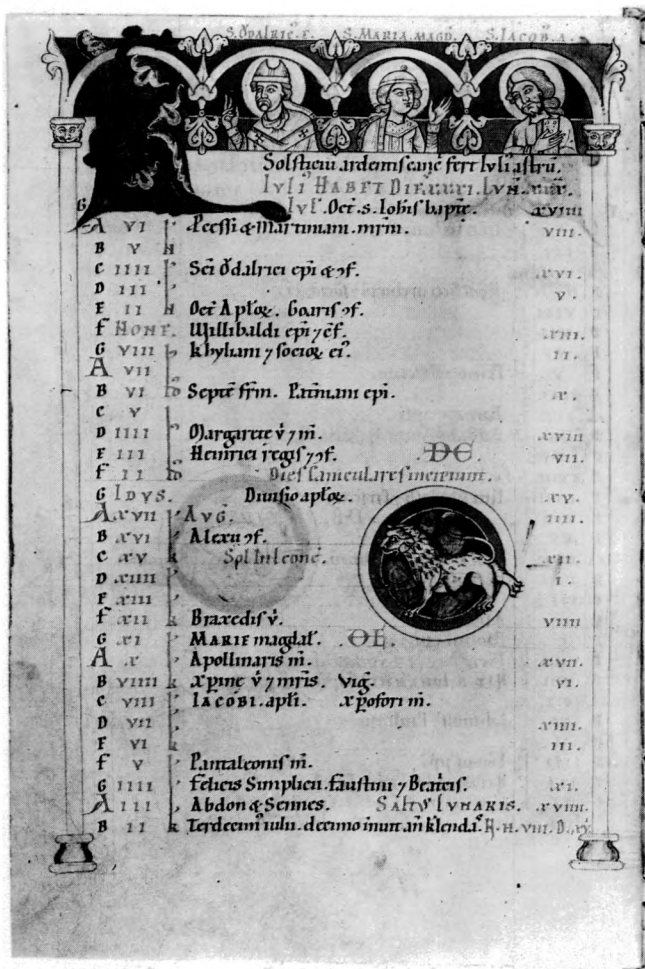 S. ŎDALRIC. E. S. MARIA. MAGD. S. IACOB. A.
Solsticiū ardentis canc̄ fert Iulĭ astrū.
IVLI' HABET DIES XXXI. LVN. XXX.
G IVL̄. Oct̄. S. Ioh̄is bapt̄e. xviiii
A VI Processi & Martiniani. mr̄m. viii.
B V N
C IIII Sc̄i Ŏdalrici epi & ɔf. xvi.
D III v.
E II N Oct̄ Aploꝝ. Goaris ɔf.
F NONE. Willibaldi epi ⁊ c̄f. xiii.
G VIII Khyliani ⁊ socioꝝ ei'. ii.
A VII
B VI Septē fr̄m. epi. x.
C V
D IIII Margarete v̄ ⁊ m̄. xviii
E III Heinrici regis ⁊ ɔf. vii.
F II Dies caniculares incipiunt.
G IDVS. Diuisio aploꝝ. xv.
A xvii AVG. iiii.
B XVI Alexii ɔf.
C XV Sol in leonē. xii.
D xiiii i.
E xiii
F xii Braxedis v̄. viiii
G XI MARIE magdal̄.
A X Apollinaris m̄. xvii.
B VIIII k xp̄ine v̄ ⁊ mr̄is. Viḡ. vi.
C VIII IACOBI. apl̄i. xp̄ofori m̄.
D VII xiiii.
E VI k iii.
F V Pantaleonis m̄.
G IIII Felicis Simplicii. Faustini ⁊ Beatr̄cis. xi.
A III Abdon & Sennes. SALTVS LVNARIS. xviiii.
B II k Terdecim' iulii. decimo innuit an̄ kl̄endas. N. H. VIII. D. XVI